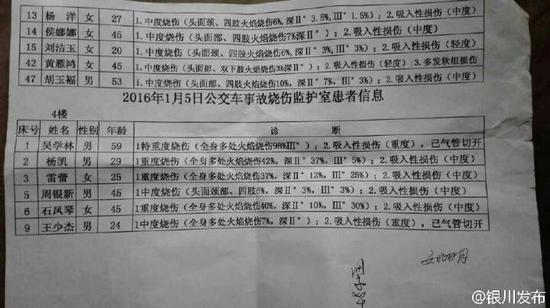 13 杨 洋 女 27 1.中度烧伤(头面颈、四肢火焰烧伤6%,深Ⅱ°3.5%,Ⅲ°1.5%);2.吸入性损伤(中度)
14 侯娜娜 女 45 1.中度烧伤(头面部、四肢火焰烧伤7%深Ⅱ°3%);2.吸入性损伤(中度)
15 刘洁玉 女 20 1.中度烧伤(头面颈、四肢火焰烧伤6%,深Ⅱ°6%);2.吸入性损伤(轻度)
42 黄雁鸿 女 45 1.中度烧伤(头面部、双下肢火焰烧伤3%深Ⅱ°);2.吸入性损伤(轻度);3.多发软组损伤
47 胡玉福 男 53 1.中度烧伤(头面部、四肢火焰烧伤10%,深Ⅱ°7%,Ⅲ°3%);2.吸入性损伤(中度)
2016年1月5日公交车事故烧伤监护室患者信息
4楼
床号 姓名 性别 年龄 诊 断
1 吴学林 男 59 1特重度烧伤(全身多处火焰烧伤98%Ⅲ°);2.吸入性损伤(重度),已气管切开
2 杨凯 男 29 1重度烧伤(全身多处火焰烧伤42%,深Ⅱ°37%,Ⅲ°5%);2.吸入性损伤(中度)
3 雷蕾 女 25 1重度烧伤(全身多处火焰烧伤37%,深Ⅱ°12%,Ⅲ°25%);2.吸入性损伤(中度)
5 周银新 男 45 1中度烧伤(头面颈部、四肢6%,深Ⅱ°3%,Ⅲ°3%);2.吸入性损伤(中度)
6 石凤琴 女 45 1重度烧伤(全身多处火焰烧伤40%,深Ⅱ°10%,Ⅲ°30%);2.吸入性损伤(中度)
9 王少杰 男 24 1中度烧伤(全身多处火焰烧伤7%,深Ⅱ°);2.吸入性损伤(重度),已气管切开
@银川发布